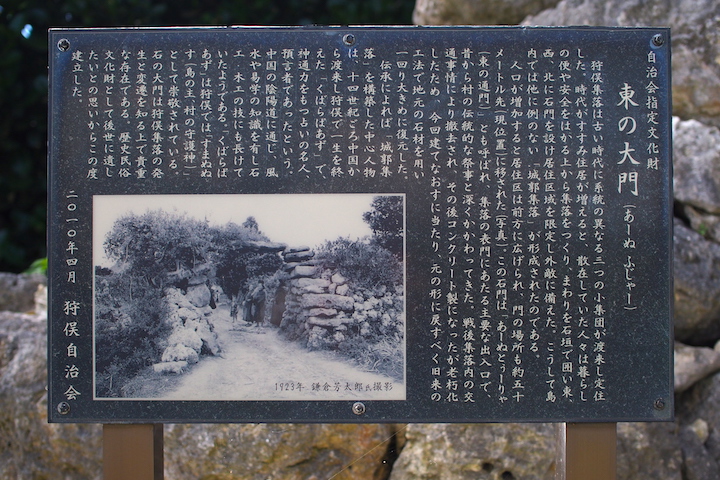 自治会指定文化財
東の大門（あーぬ ふじゃー）
狩俣集落は古い時代に系統の異なる三つの小集団が渡来し定住
した。時代がすすみ住居が増えると、散在していた人々は暮らし
の便や安全をはかる上から集落をつくり、まわりを石垣で囲い東、
西、北に石門を設け居住区域を限定し外敵に備えた。こうして島
内では他に例のない「城郭集落」が形成されたのである。
人口が増加すると居住区は前方に広げられ、門の場所も約五十
メートル先（現位置）に移された（写真）この石門は、あーぬとぅーりゃ
（東の通門）とも呼ばれ、集落の表門にあたる主要な出入口で、
昔から村の伝統的な祭事と深くかかわってきた。戦後集落内の交
通事情により撤去され、その後コンクリート製になったが老朽化
したため、今回建てなおすに当たり、元の形に戻すべく旧来の
工法で地元の石材を用い
一回り大きめに復元した。
伝承によれば、「城郭集
落」を構築した中心人物
は、十四世紀ごろ中国か
ら渡来し狩俣で一生を終
えた「くばらぱあず」で、
神通力をもつ占いの名人、
預言者であったという。
中国の陰陽道に通じ、風
水や易学の知識を有し石
工・木工の技にも長けて
いたようである。「くばらぱ
あず」は狩俣では「すまぬぬ
す（島の主・村の守護神）」
として崇敬されている。
石の大門は狩俣集落の発
生と変遷を知る上で貴重
な存在である。歴史民俗
文化財として後世に遺し
たいとの思いからこの度
建立した。
二〇一〇年四月　狩俣自治会
1923年 鎌倉芳太郎氏撮影